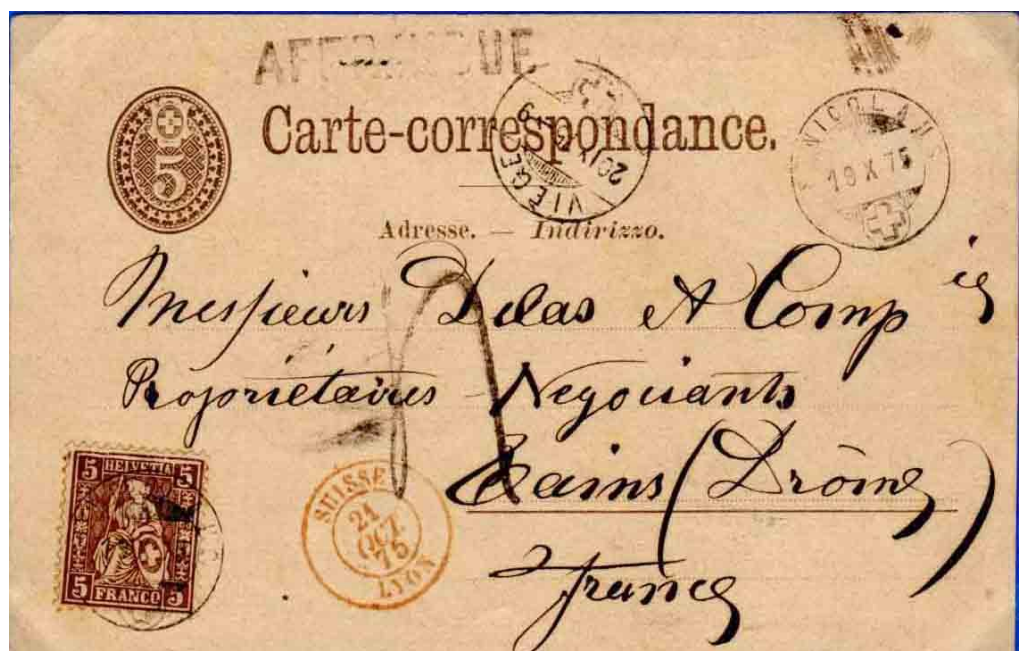 5
Carte-correspondance.
VIÈGE
NICOLAUS
19 X 75
Adresse. — Indirizzo.
Messieurs Delas et Comp ie
Propriétaires Négociants
Tains (Drôme)
france
5 HELVETIA 5
5 FRANCO 5
SUISSE
21
OCT.
75
LYON